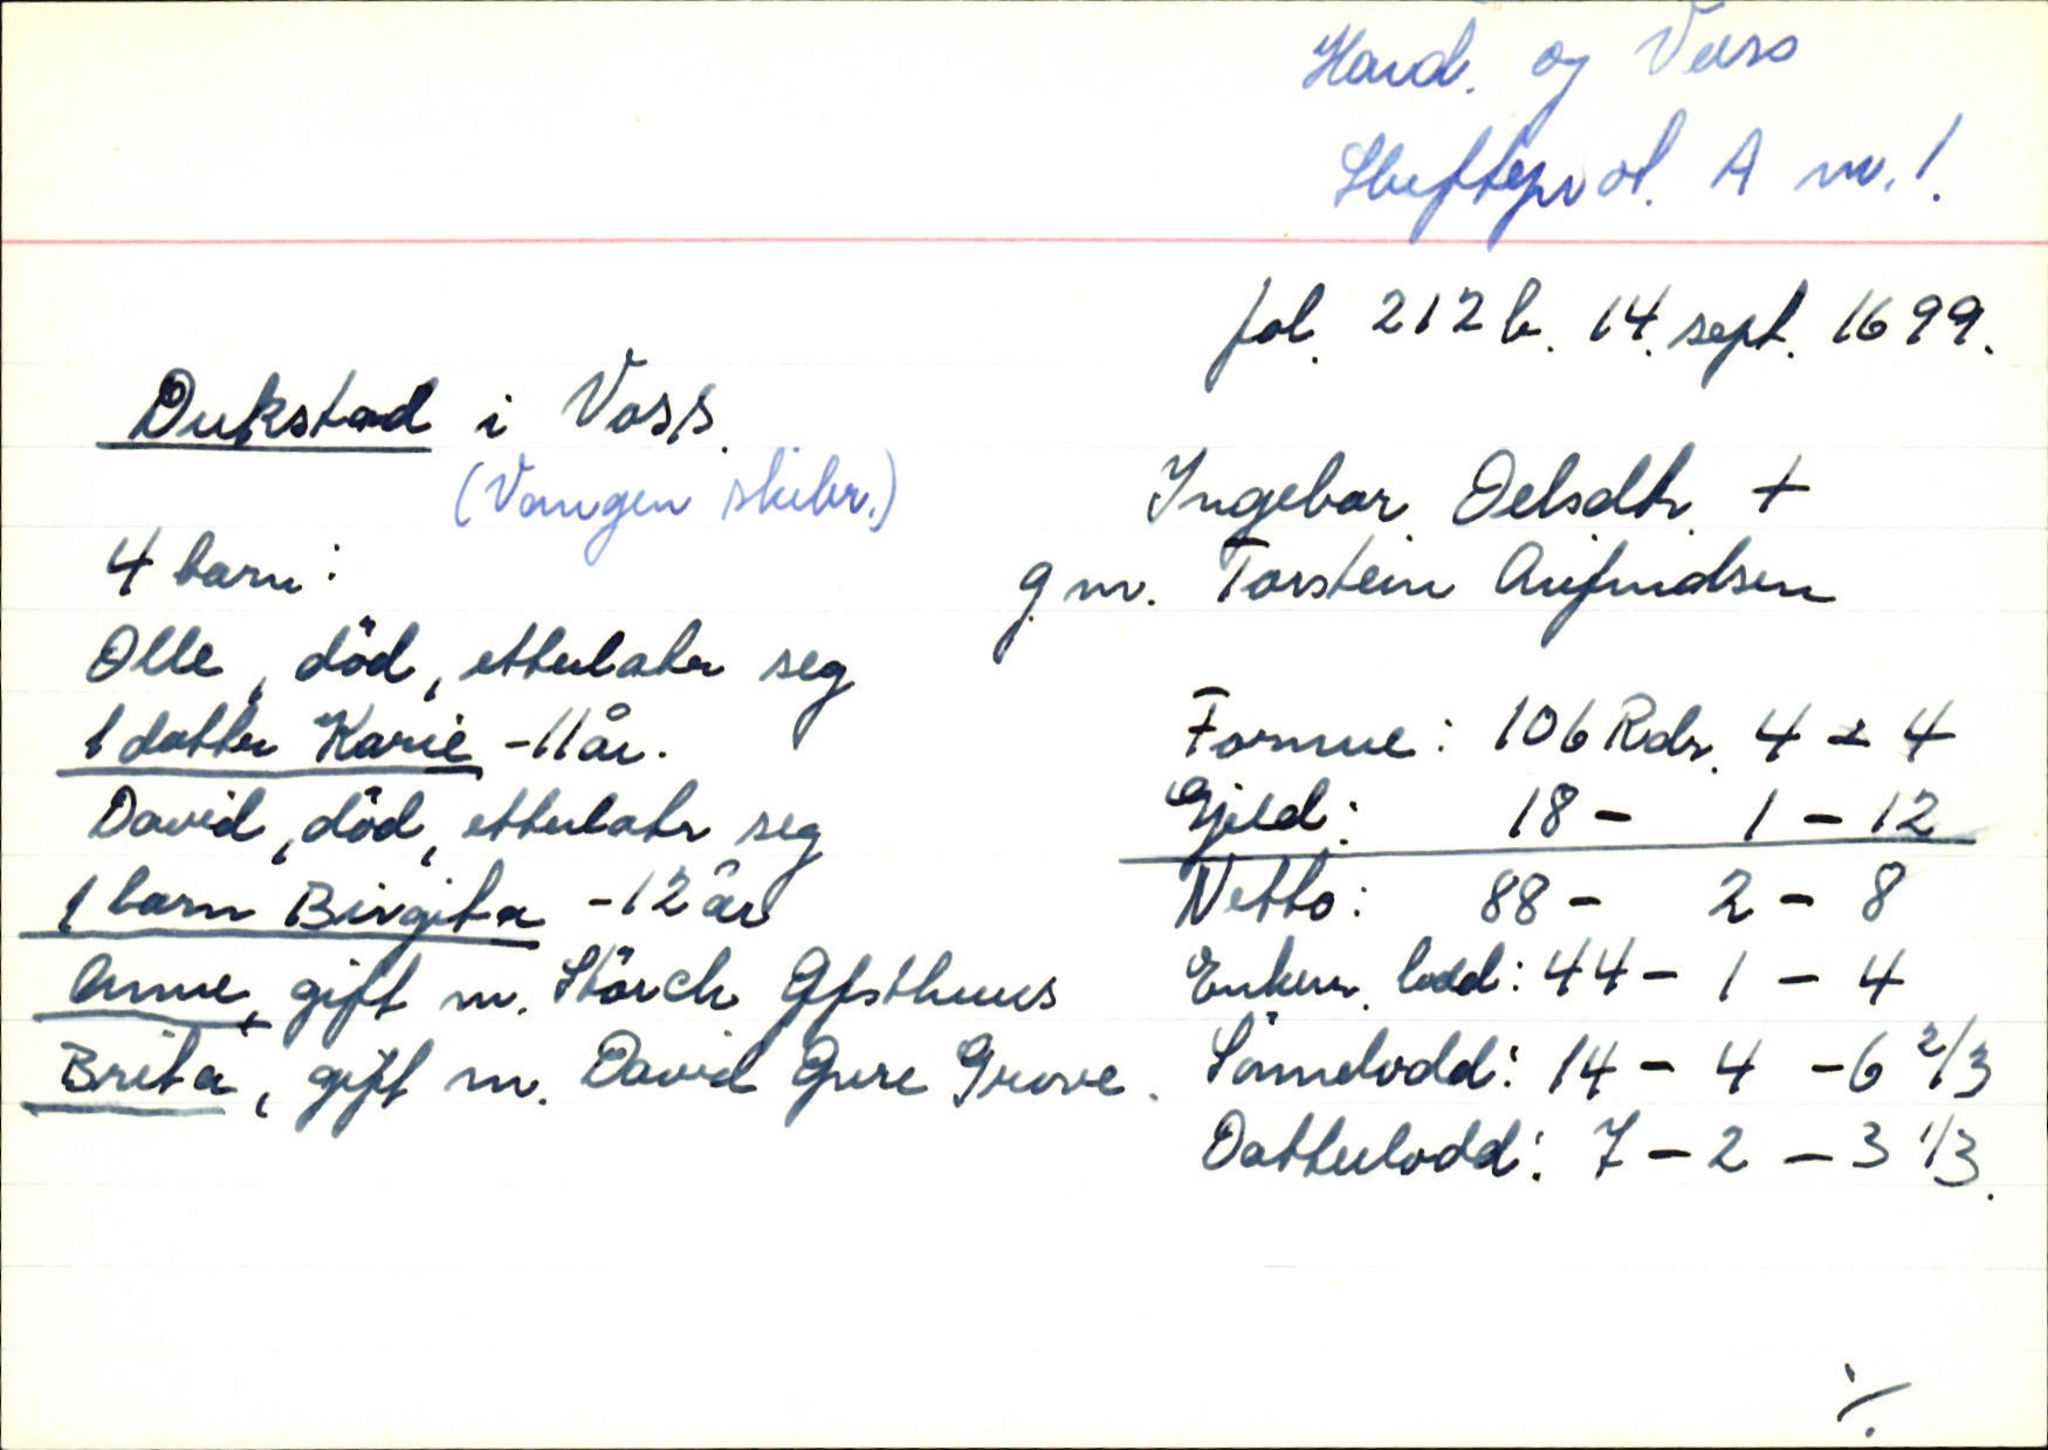 Hard. og Voss
Skifteprot. A nr. 1.
fol. 212 b. 14. sept. 1699.
Dukstad i Voss.
(Vangen skibr.)
Ingebor Oelsdtr. +
g. m. Torstein Anfindsen
4 barn:
Olle, död, etterlater seg
1 datter Karie - 11 år.
David, död, etterlater seg
1 barn Birgita - 12 år
Anne, gift m. Störch Gjfsthuus
Brita, gift m. David Gure Grove.
Formue: 106 Rdr. 4 - 4
Gjeld: 18 - 1 - 12
Netto: 88 - 2 - 8
Enkem. lodd: 44 - 1 - 4
Sönnelodd: 14 - 4 - 6 2/3
Datterlodd: 7 - 2 - 3 1/3.
./.